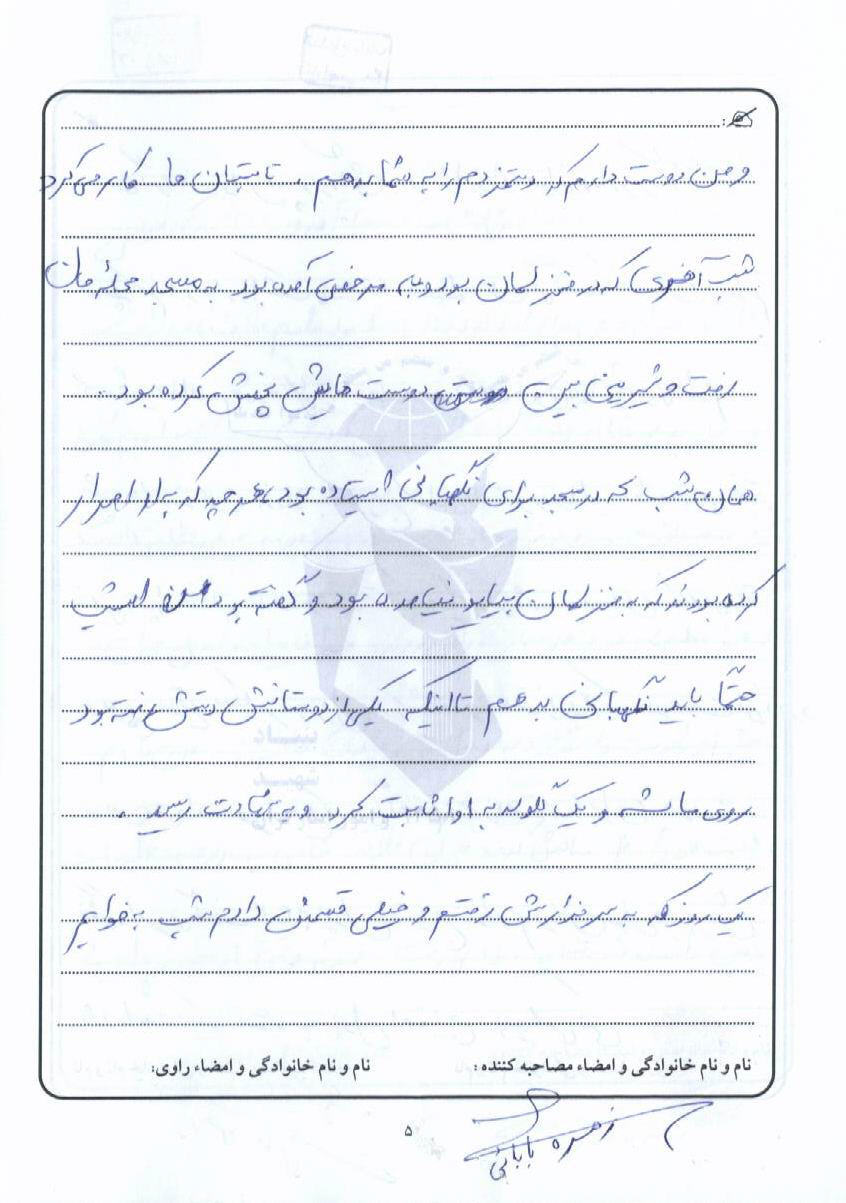 و من دوست دارم که دستمزدم را به شما بدهم . تابستان ها کار می کرد
شب آخری که در منزلمان بود و به مرخصی آمده بود به مسجد محله مان
رفت و شیرینی بین دوست هایش پخش کرده بود .
همان شب که در مسجد برای نگهبانی ایستاده بود ، هر چه که به او اصرار
کرده بودند که به منزلمان بیاید نیامده بود و گفته بود من امشب
حتماً باید نگهبانی بدهم تا اینکه یکی از دوستانش دستش رفته بود
روی ماشه و یک گلوله به او اثابت کرد و به شهادت رسید .
یک روز که به سر مزارش رفتم و خیلی قسمش دادم شب به خوابم
نام و نام خانوادگی و امضاء مصاحبه کننده : نام و نام خانوادگی و امضاء راوی:
۵
زهره بابائی